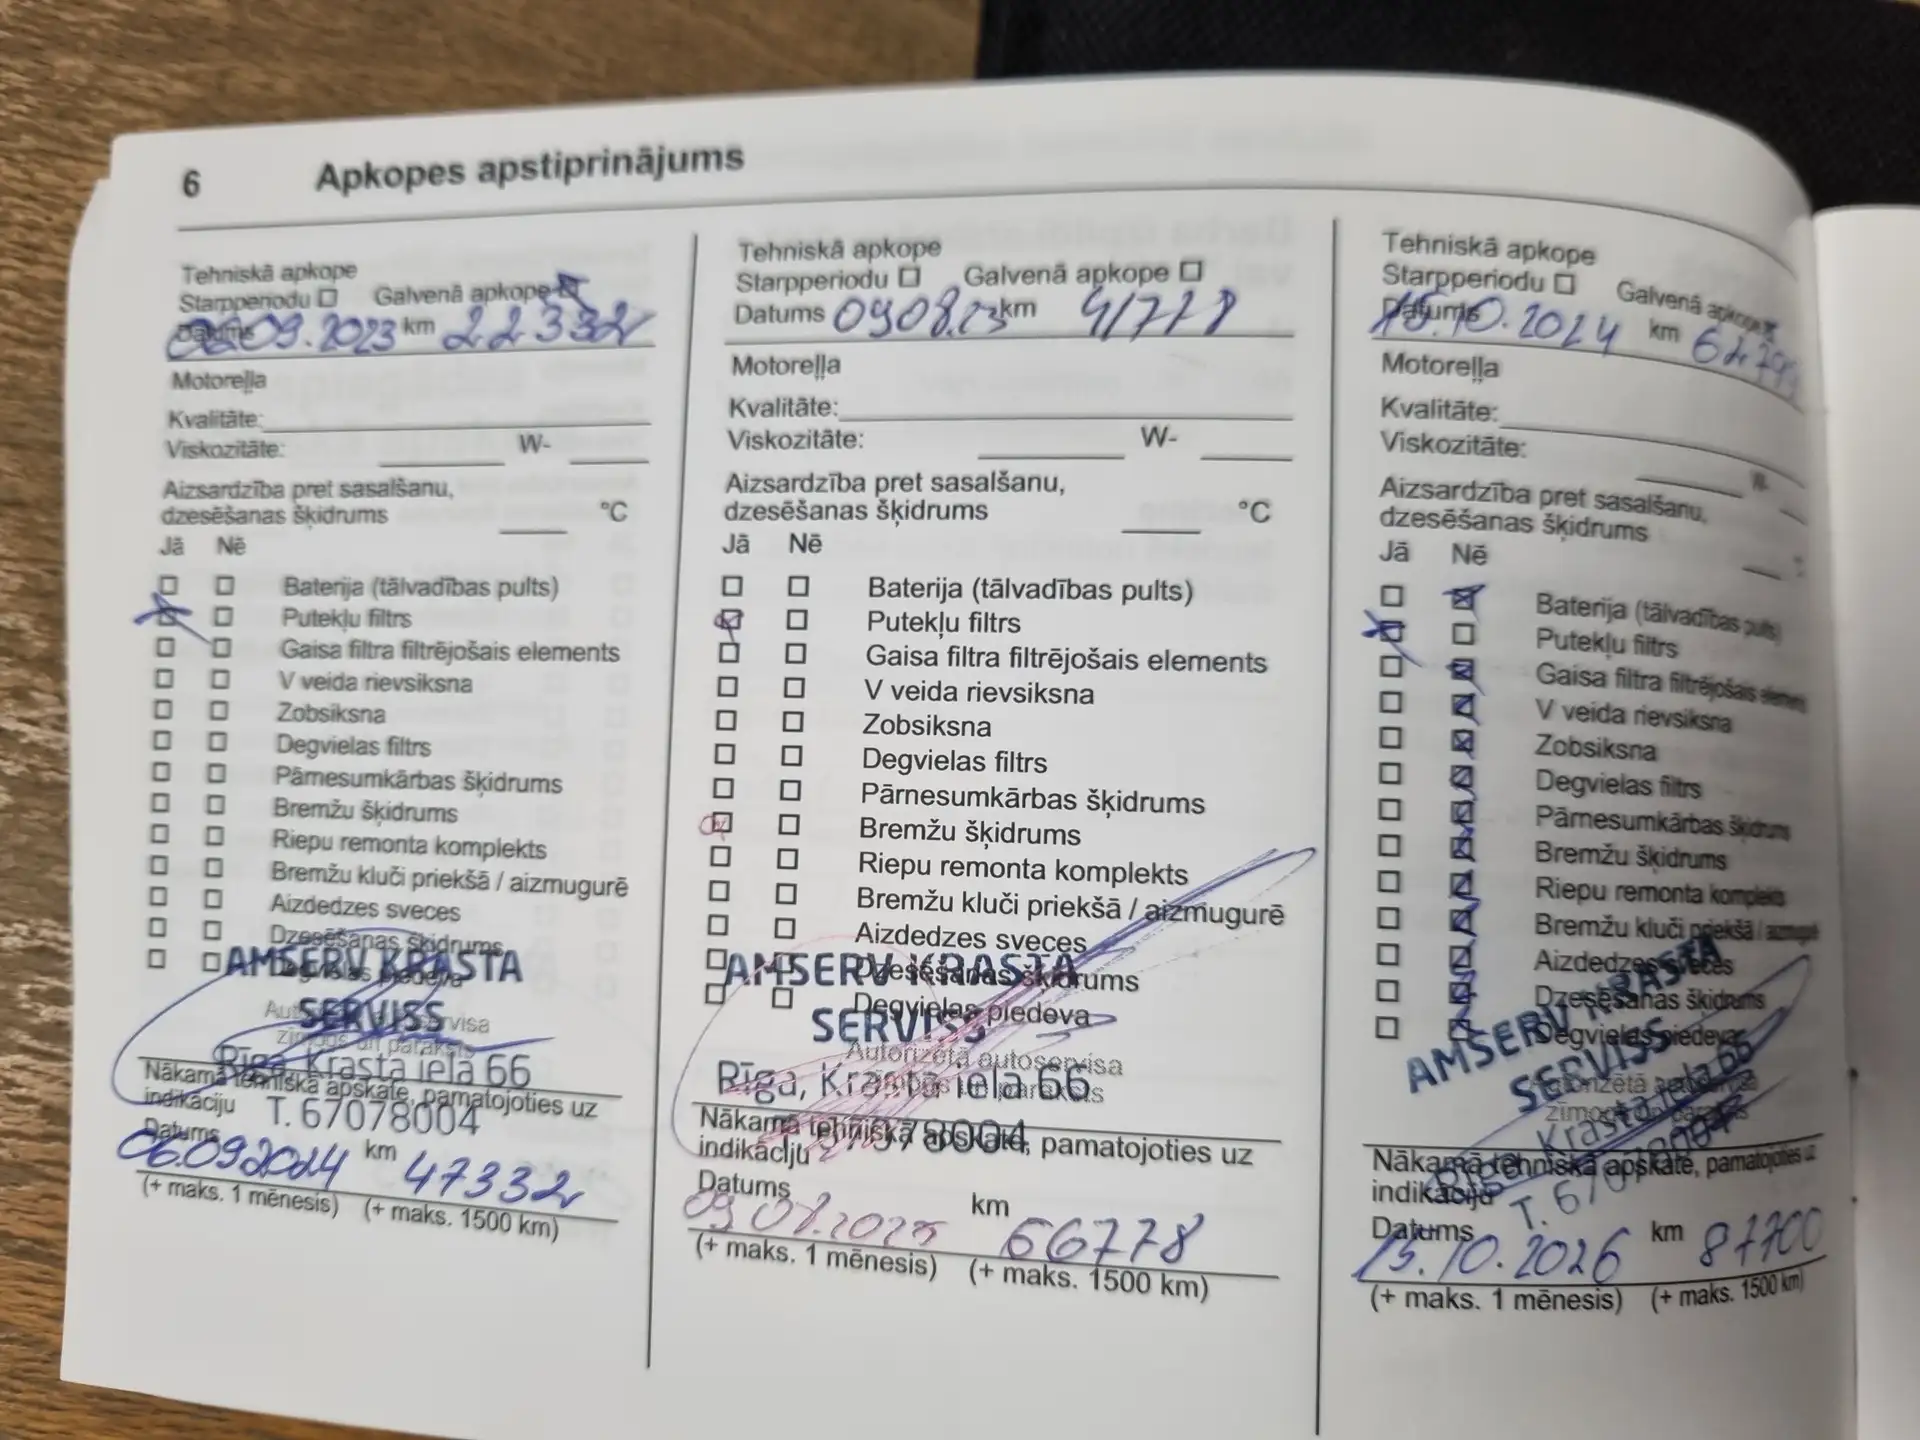 6 Apkopes apstiprinājums
Tehniskā apkope
Starpperiodu ☐ Galvenā apkope ☒
Datums 09.2023 km 22332
Motoreļļa
Kvalitāte:
Viskozitāte: W-
Aizsardzība pret sasalšanu,
dzesēšanas šķidrums °C
Jā Nē
☐ ☐ Baterija (tālvadības pults)
☒ ☐ Putekļu filtrs
☐ ☐ Gaisa filtra filtrējošais elements
☐ ☐ V veida rievsiksna
☐ ☐ Zobsiksna
☐ ☐ Degvielas filtrs
☐ ☐ Pārnesumkārbas šķidrums
☐ ☐ Bremžu šķidrums
☐ ☐ Riepu remonta komplekts
☐ ☐ Bremžu kluči priekšā / aizmugurē
☐ ☐ Aizdedzes sveces
☐ ☐ Dzesēšanas šķidrums
☐ ☐ Degvielas piedeva
AMSERV KRASTA
SERVISS
zīmogs un paraksts
Rīga, Krasta ielā 66
Nākamā tehniskā apskate, pamatojoties uz
indikāciju T. 67078004
Datums 06.09.2024 km 47332
(+ maks. 1 mēnesis) (+ maks. 1500 km)
Tehniskā apkope
Starpperiodu ☐ Galvenā apkope ☐
Datums 09.08.23 km 41778
Motoreļļa
Kvalitāte:
Viskozitāte: W-
Aizsardzība pret sasalšanu,
dzesēšanas šķidrums °C
Jā Nē
☐ ☐ Baterija (tālvadības pults)
☒ ☐ Putekļu filtrs
☐ ☐ Gaisa filtra filtrējošais elements
☐ ☐ V veida rievsiksna
☐ ☐ Zobsiksna
☐ ☐ Degvielas filtrs
☐ ☐ Pārnesumkārbas šķidrums
☒ ☐ Bremžu šķidrums
☐ ☐ Riepu remonta komplekts
☐ ☐ Bremžu kluči priekšā / aizmugurē
☐ ☐ Aizdedzes sveces
☐ ☐ Dzesēšanas šķidrums
☐ ☐ Degvielas piedeva
AMSERV KRASTA
SERVISS
Autorizētā autoservisa
zīmogs un paraksts
Rīga, Krasta ielā 66
Nākamā tehniskā apskate, pamatojoties uz
indikāciju
Datums 09.08.2025 km 66778
(+ maks. 1 mēnesis) (+ maks. 1500 km)
Tehniskā apkope
Starpperiodu ☐ Galvenā apkope ☒
Datums 15.10.2024 km
Motoreļļa
Kvalitāte:
Viskozitāte: W-
Aizsardzība pret sasalšanu,
dzesēšanas šķidrums
Jā Nē
☐ ☒ Baterija (tālvadības pults)
☒ ☐ Putekļu filtrs
☐ ☒ Gaisa filtra filtrējošais elements
☐ ☒ V veida rievsiksna
☐ ☒ Zobsiksna
☐ ☒ Degvielas filtrs
☐ ☒ Pārnesumkārbas šķidrums
☐ ☒ Bremžu šķidrums
☐ ☒ Riepu remonta komplekts
☐ ☒ Bremžu kluči priekšā / aizmugurē
☐ ☒ Aizdedzes sveces
☐ ☒ Dzesēšanas šķidrums
☐ ☒ Degvielas piedeva
AMSERV KRASTA
SERVISS
Rīga, Krasta ielā 66
Nākamā tehniskā apskate, pamatojoties uz
indikāciju
Datums 15.10.2026 km 87700
(+ maks. 1 mēnesis) (+ maks. 1500 km)